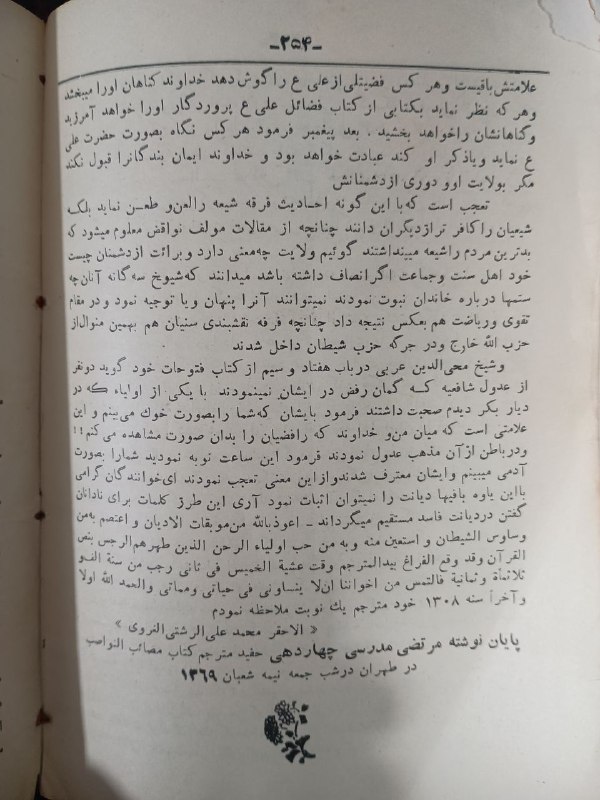 -۲۵۴-
علامتش باقیست وهر کس فضیتلی از علی ع را گوش دهد خداوند کناهان اورا میبخشد
وهر که نظر نماید بکتابی از کتاب فضائل علی ع پروردگار اورا خواهد آمرزید
وگناهانشان راخواهد بخشید . بعد پیغمبر فرمود هر کس نگاه بصورت حضرت علی
ع نماید ویاذکر او کند عبادت خواهد بود و خداوند ایمان بندگانرا قبول نکند
مگر بولایت اوو دوری ازدشمنانش
تعجب است که با این گونه احادیث فرقه شیعه رالعن و طعن نماید بلکه
شیعیان راکافر تر ازدیگران دانند چنانچه از مقالات مولف نواقض معلوم میشود که
بدترین مردم راشیعه میپنداشتند گوئیم ولایت چه معنی دارد و برائت ازدشمنان چیست
خود اهل سنت وجماعت اگر انصاف داشته باشد میدانند که شیوخ سه گانه آنان چه
ستمها درباره خاندان نبوت نمودند نمیتوانند آنرا پنهان ویا توجیه نمود ودر مقام
تقوی وریاضت هم بعکس نتیجه داد چنانچه فرفه نقشبندی سنیان هم بهمین منوال از
حزب الله خارج ودر جرگه حزب شیطان داخل شدند
وشیخ محی الدین عربی درباب هفتاد و سیم از کتاب فتوحات خود گوید دونفر
از عدول شافعیه کسه گمان رفض در ایشان نمینمودند با یکی از اولیاء که در
دیار بکر دیدم صحبت داشتند فرمود بایشان که شما را بصورت خوك می بینم و این
علامتی است که میان من و خداوند که رافضیان را بدان صورت مشاهده می کنم!!
ودرباطن از آن مذهب عدول نمودند فرمود این ساعت توبه نمودید شمارا بصورت
آدمی میبینم وایشان معترف شدندو ازاین معنی تعجب نمودند ای خوانندگان گرامی
بااین یاوه بافیها دیانت را نمیتوان اثبات نمود آری این طرز کلمات برای نادانان
گفتن دردیانت فاسد مستقیم میگرداند - اعوذبالله من موبقات الادیان و اعتصم به من
وساوس الشیطان و استعین منه وبه من حب اولیاء الرحمن الذین طهرهم الرجس بنص
القرآن وقد وقع الفراغ بیدالمترجم وقت عشیة الخمیس فی ثانی رجب من سنة الف و
ثلاثمأة وثمانیة فالتمس من اخواننا ان لا ینساونی فی حیاتی ومماتی والحمد الله اولا
و آخرأ سنه ۱۳۰۸ خود مترجم یك نوبت ملاحظه نمودم
« الاحقر محمد علی الرشتی الغروی »
پایان نوشته مرتضی مدرسی چهاردهی حفید مترجم کتاب مصائب النواصب
در طهران درشب جمعه نیمه شعبان ۱۳۶۹